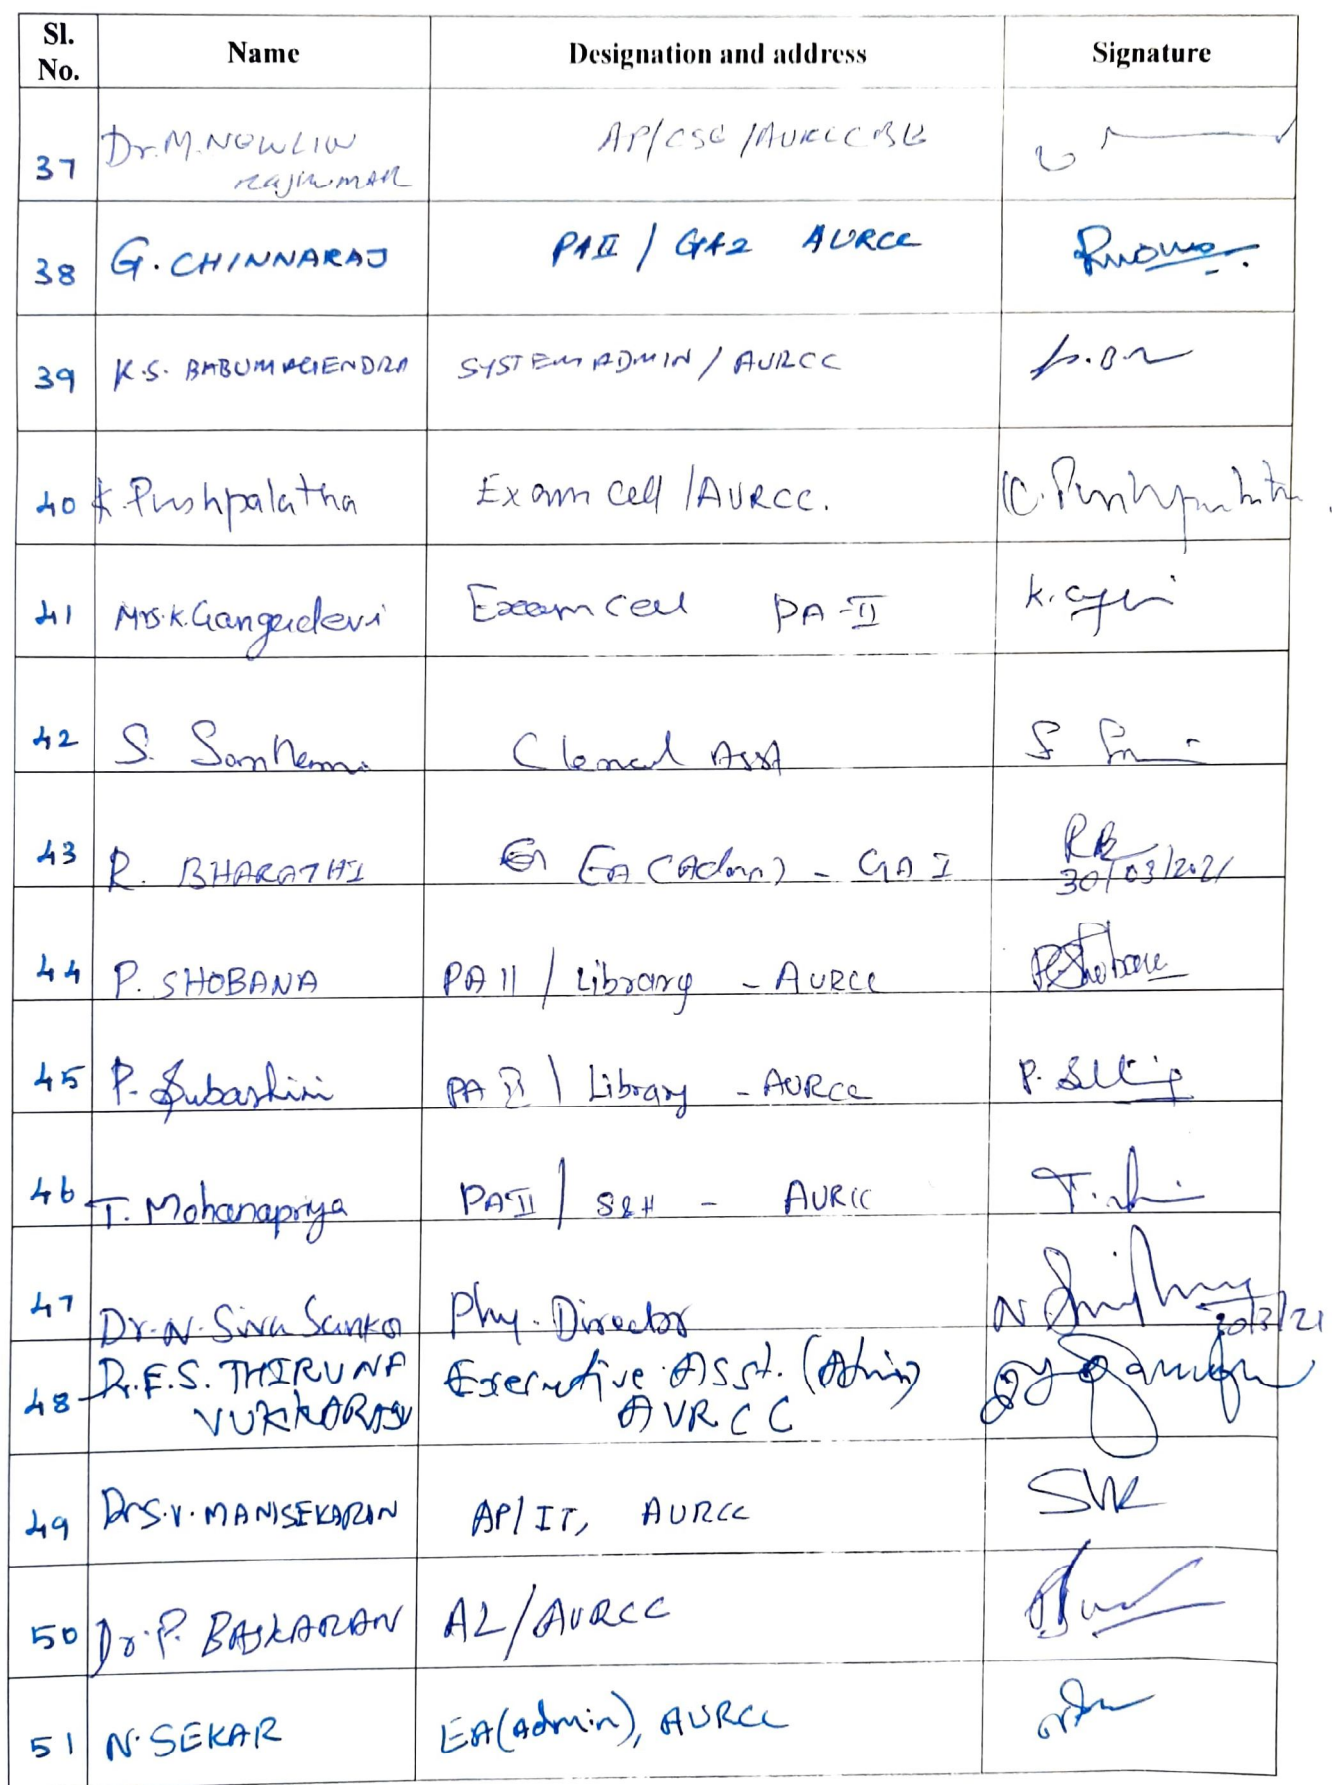 Sl. No. Name Designation and address Signature
37 Dr. M. NEWLIN AP/CSE/AURCCBE
Rajkumar
38 G. CHINNARAJ PA II / GA2 AURCC
39 K.S. BABUMAGENDRA SYSTEM ADMIN / AURCC
40 K. Pushpalatha Exam cell /AURCC. K. Pushpalatha
41 Mrs. K. Gangadevi Exam cell PA-II
42 S. Clerical Asst
43 R. BHARATHI EA (Admn) - GA I RB
30/03/2021
44 P. SHOBANA PA II / Library - AURCC P. Shobana
45 P. Subashini PA II / Library - AURCC
46 T. Mohanapriya PA II / S&H - AURCC
47 Dr. N. Siva Sankar Phy. Director
30/3/21
48 Dr. E.S. THIRUNA Executive Asst. (Admin)
VUKKARASU AURCC
49 Dr. S.V. MANISEKARAN AP/IT, AURCC SVR
50 Dr. P. BASKARAN AL/AURCC
51 N. SEKAR EA (Admin), AURCC